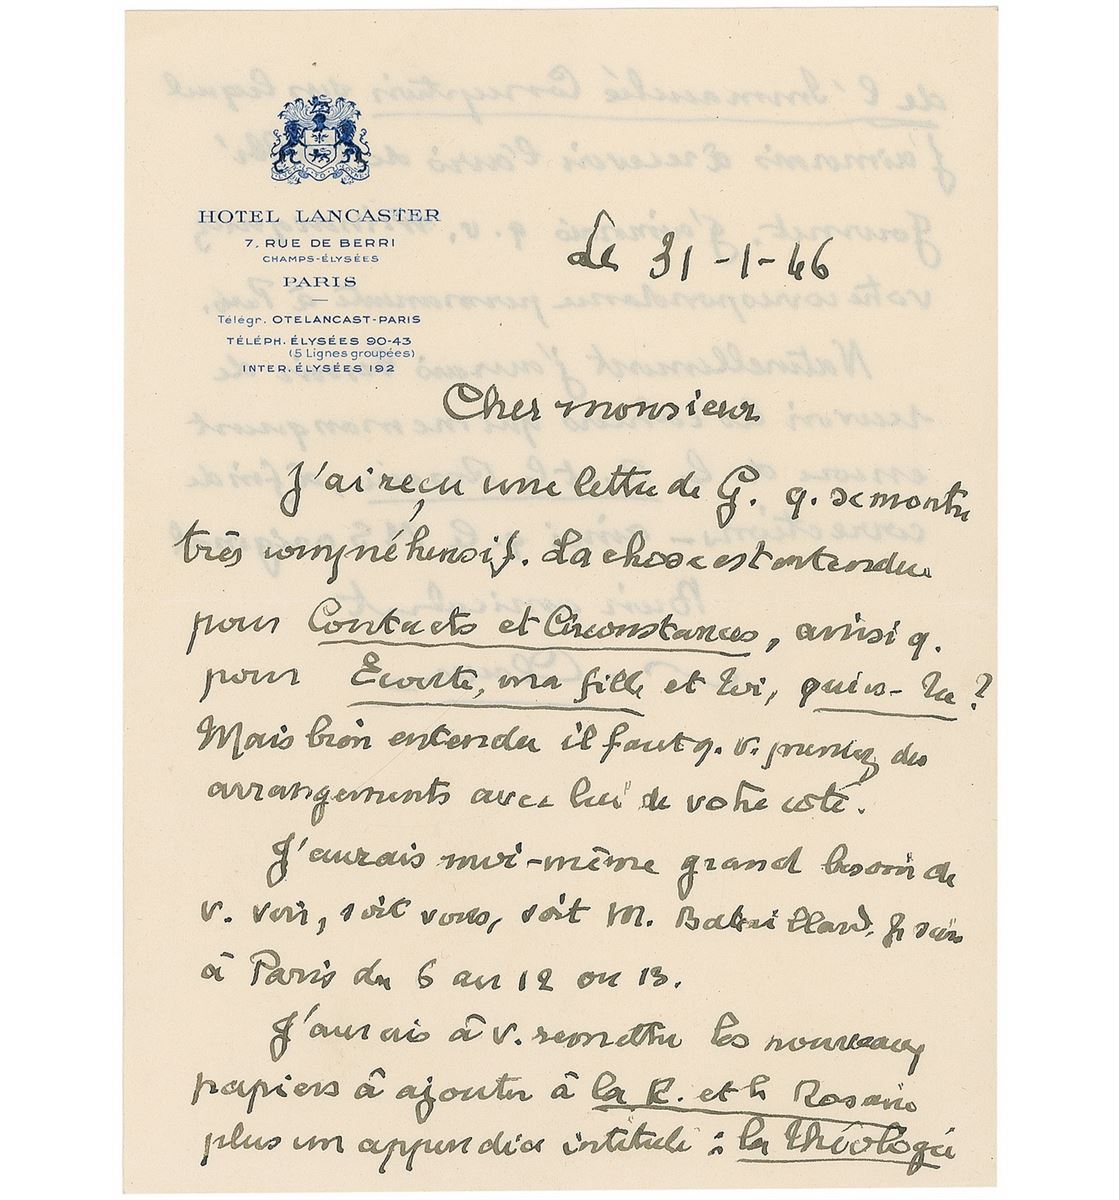 HOTEL LANCASTER
7, RUE DE BERRI
CHAMPS-ÉLYSÉES
PARIS
Télégr. OTELANCAST-PARIS
TÉLÉPH. ÉLYSÉES 90-43
(5 Lignes groupées)
INTER. ÉLYSÉES 192
Le 31-1-46
Cher monsieur
J'ai reçu une lettre de G. q. se montre
très compréhensif. La chose est entendue
pour Contacts et Circonstances, ainsi q.
pour Ecoute, ma fille et Toi, qui es-tu ?
Mais bien entendu il faut q. v. preniez des
arrangements avec lui de votre côté.
J'aurais moi-même grand besoin de
v. voir, soit vous, soit M. Bataillard. Je suis
à Paris du 6 au 12 ou 13.
J'aurais à v. remettre les nouveaux
papiers à ajouter à la R. et le Rosaire
plus un appendice intitulé : la théologie